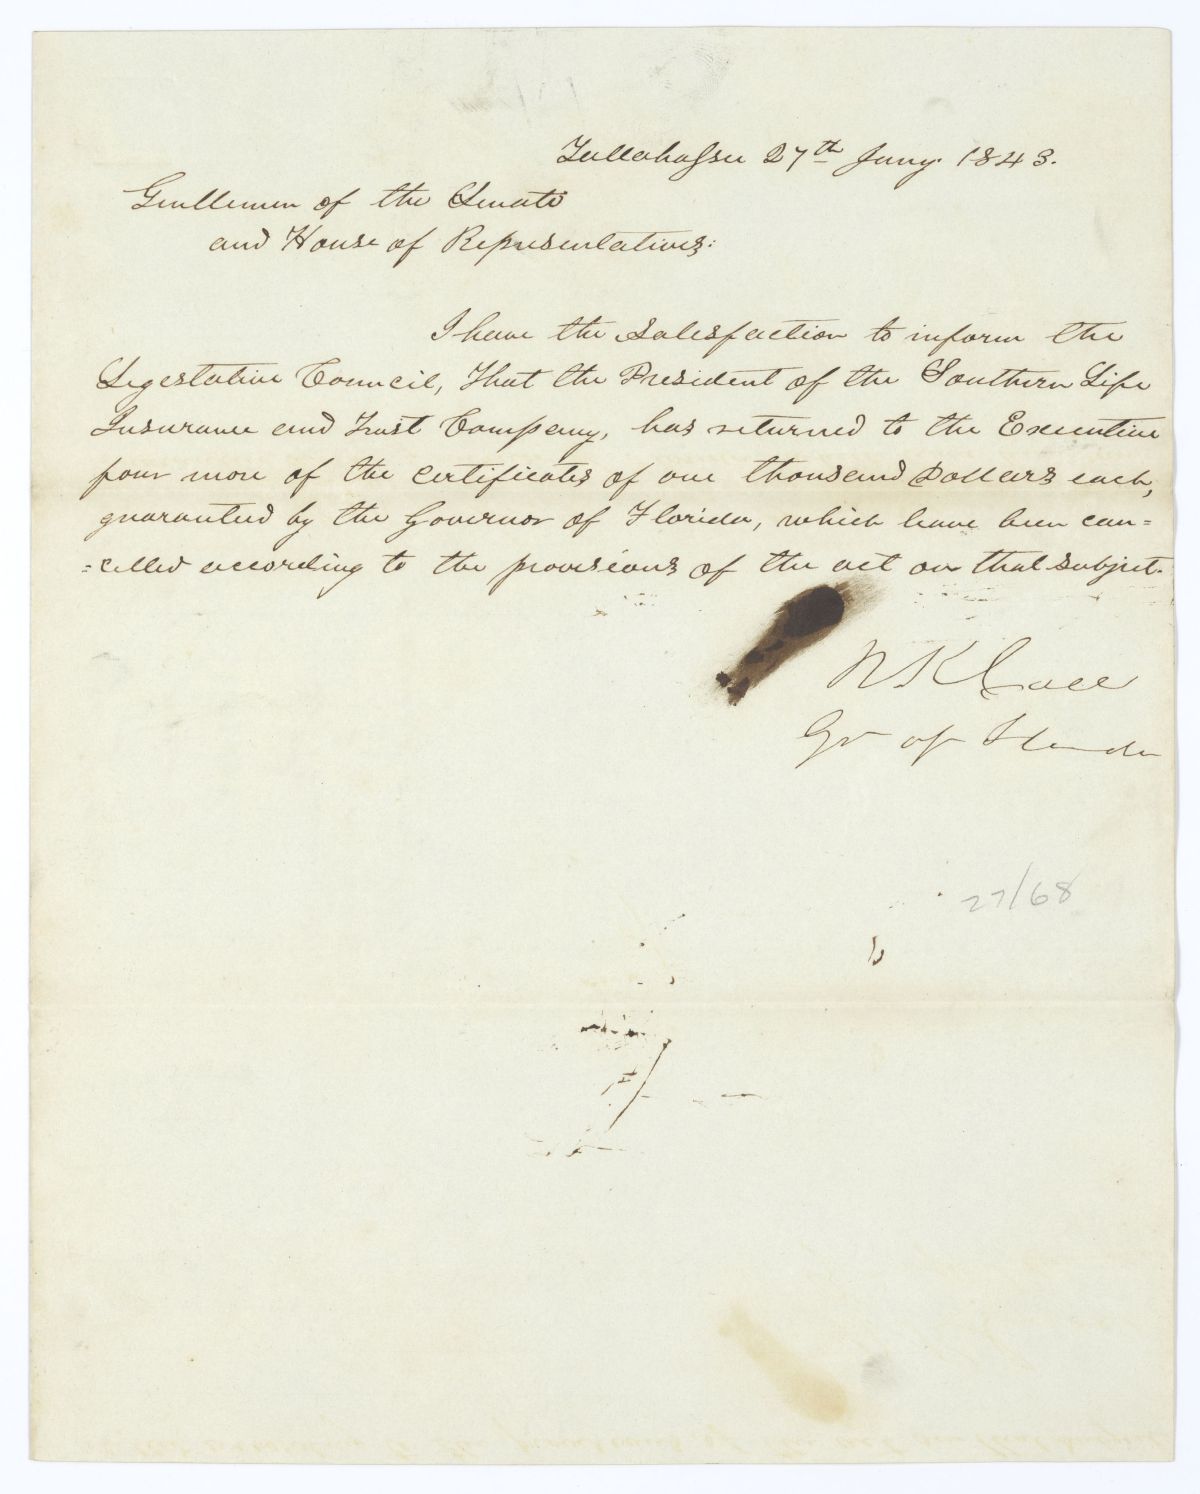 Tallahassee 27th Jany. 1843.
Gentlemen of the Senate
and House of Representatives:
I have the satisfaction to inform the
Legislative Council, that the President of the Southern Life
Insurance and Trust Company, has returned to the Executive
four more of the certificates of one thousand Dollars each,
guaranteed by the Governor of Florida, which have been can=
=celled according to the provisions of the act on that subject.
R K Call
Gov of Florida
27/68